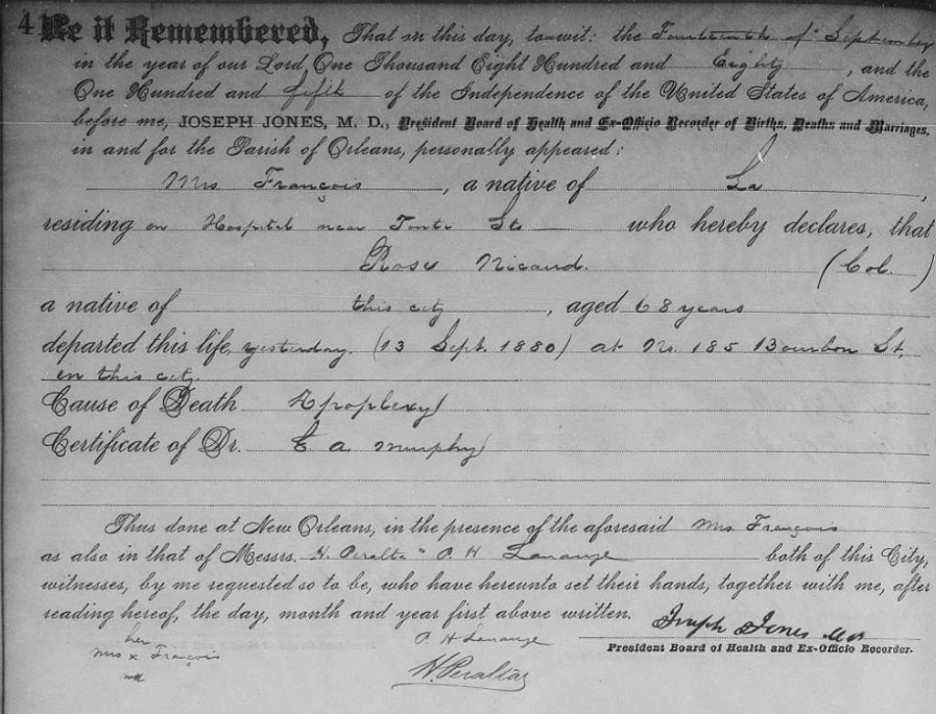 4 Be it Remembered, That on this day, to-wit: the Fourteenth of September
in the year of our Lord, One Thousand Eight Hundred and Eighty, and the
One Hundred and fifth of the Independence of the United States of America,
before me, JOSEPH JONES, M. D., President Board of Health and Ex-Officio Recorder of Births, Deaths and Marriages,
in and for the Parish of Orleans, personally appeared:
Mrs François, a native of La,
residing on Hospital near Tonti Sts who hereby declares, that
Rose Nicaud. (Col.)
a native of this city, aged 68 years
departed this life, yesterday. (13 Sept. 1880) at No. 185 Bourbon St.
in this city.
Cause of Death Apoplexy
Certificate of Dr. E. A. Murphy
Thus done at New Orleans, in the presence of the aforesaid Mrs François
as also in that of Messrs. H. Peralta " P. H. Lanauze both of this City,
witnesses, by me requested so to be, who have hereunto set their hands, together with me, after
reading hereof, the day, month and year first above written.
Joseph Jones M D
President Board of Health and Ex-Officio Recorder.
her
Mrs x François
P. H Lanauze
H. Peralta